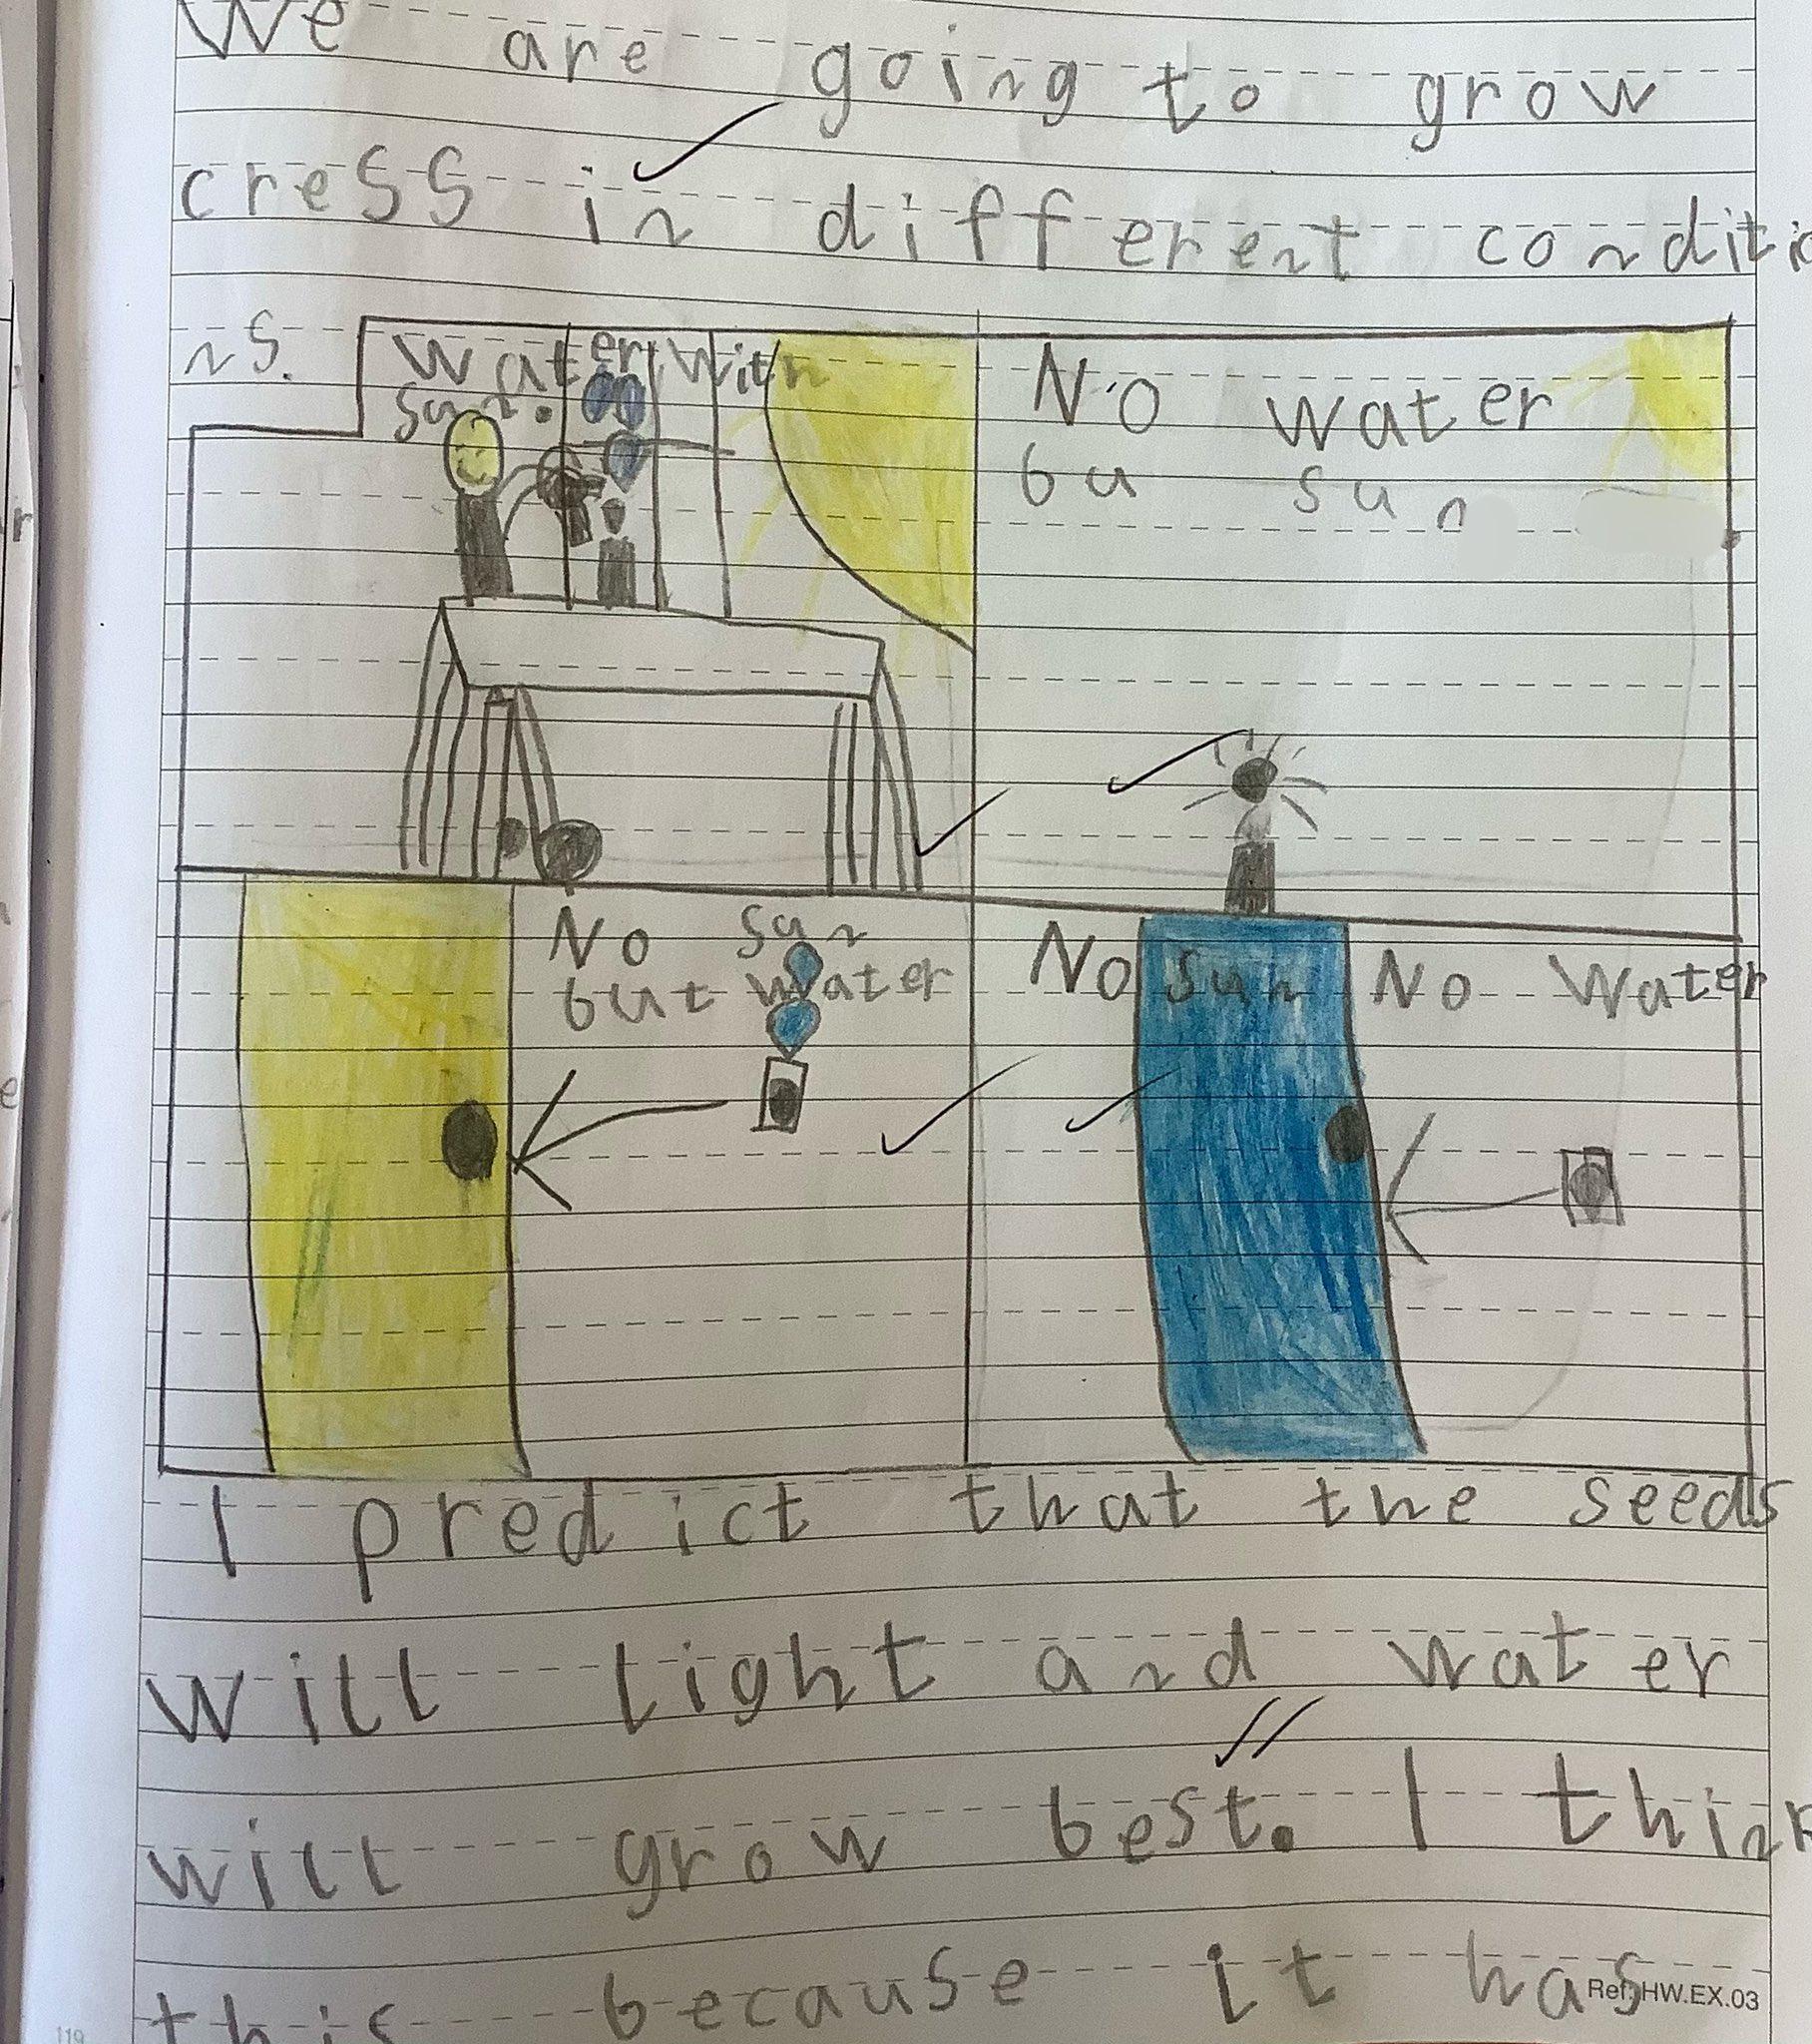 We are going to grow
cress in different conditio
ns.
Water with
sun.
No water
bu sun
No sun
but water
No sun No Water
I predict that the seeds
will light and water
will grow best. I think
this because it has
Ref: HW.EX.03
119